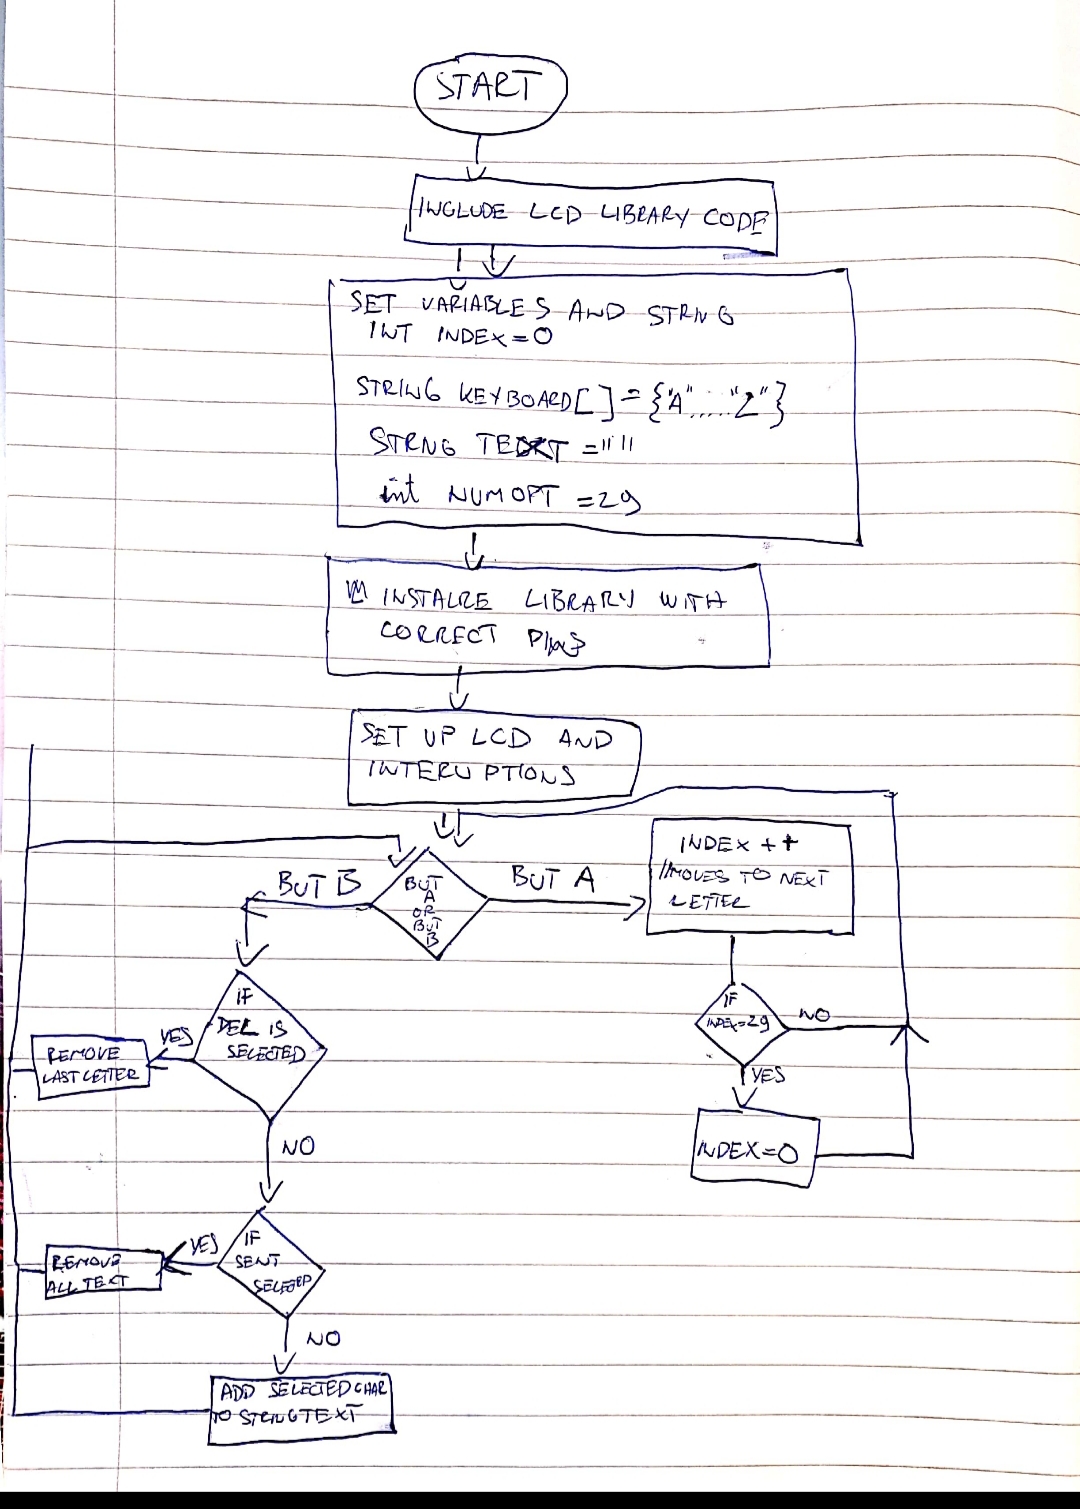 START
INCLUDE LCD LIBRARY CODE
SET VARIABLES AND STRNG
INT INDEX=0
STRING KEYBOARD[]={"A"....."Z"}
STRNG TEXT =""
int NUMOPT =29
LIBRARY WITH
CORRECT PINS
SET UP LCD AND
INTERUPTIONS
BUT B
BUT
A
OR
BUT
B
BUT A
INDEX ++
//MOVES TO NEXT
LETTER
IF
INDEX=29
NO
YES
INDEX=0
IF
DEL IS
SELECTED
YES
REMOVE
LAST LETTER
NO
IF
SENT
YES
REMOVE
ALL TEXT
NO
ADD SELECTED CHAR
TO STRING TEXT